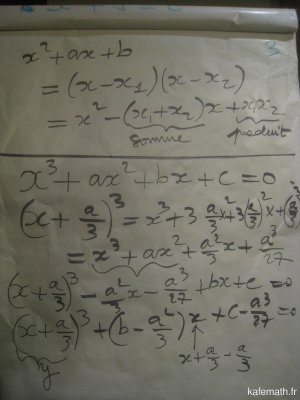 x² + ax + b
= (x - x₁)(x - x₂)
= x² - (x₁ + x₂)x + x₁x₂
somme produit
x³ + ax² + bx + c = 0
(x + a/3)³ = x³ + 3 a/3 x² + 3(a/3)² x + (a/3)³
= x³ + ax² + a²/3 x + a³/27
(x + a/3)³ - a²/3 x - a³/27 + bx + c = 0
(x + a/3)³ + (b - a²/3) x + c - a³/27 = 0
y x + a/3 - a/3
kafemath.fr